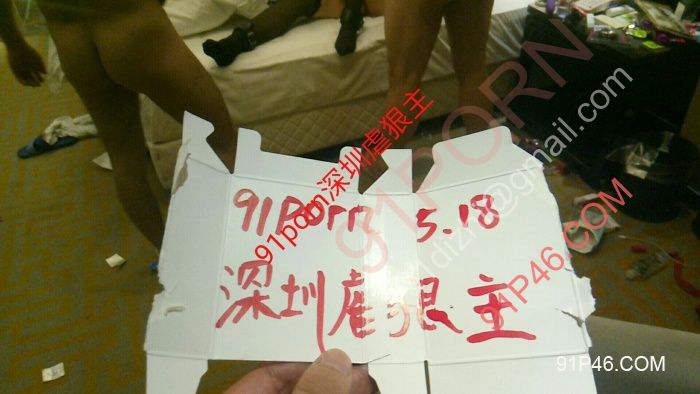 91porn深圳虐狠主
91PORN
dizh@gmail.com
91P46.COM
91Porn 5.18
深圳虐狠主
91P46.COM